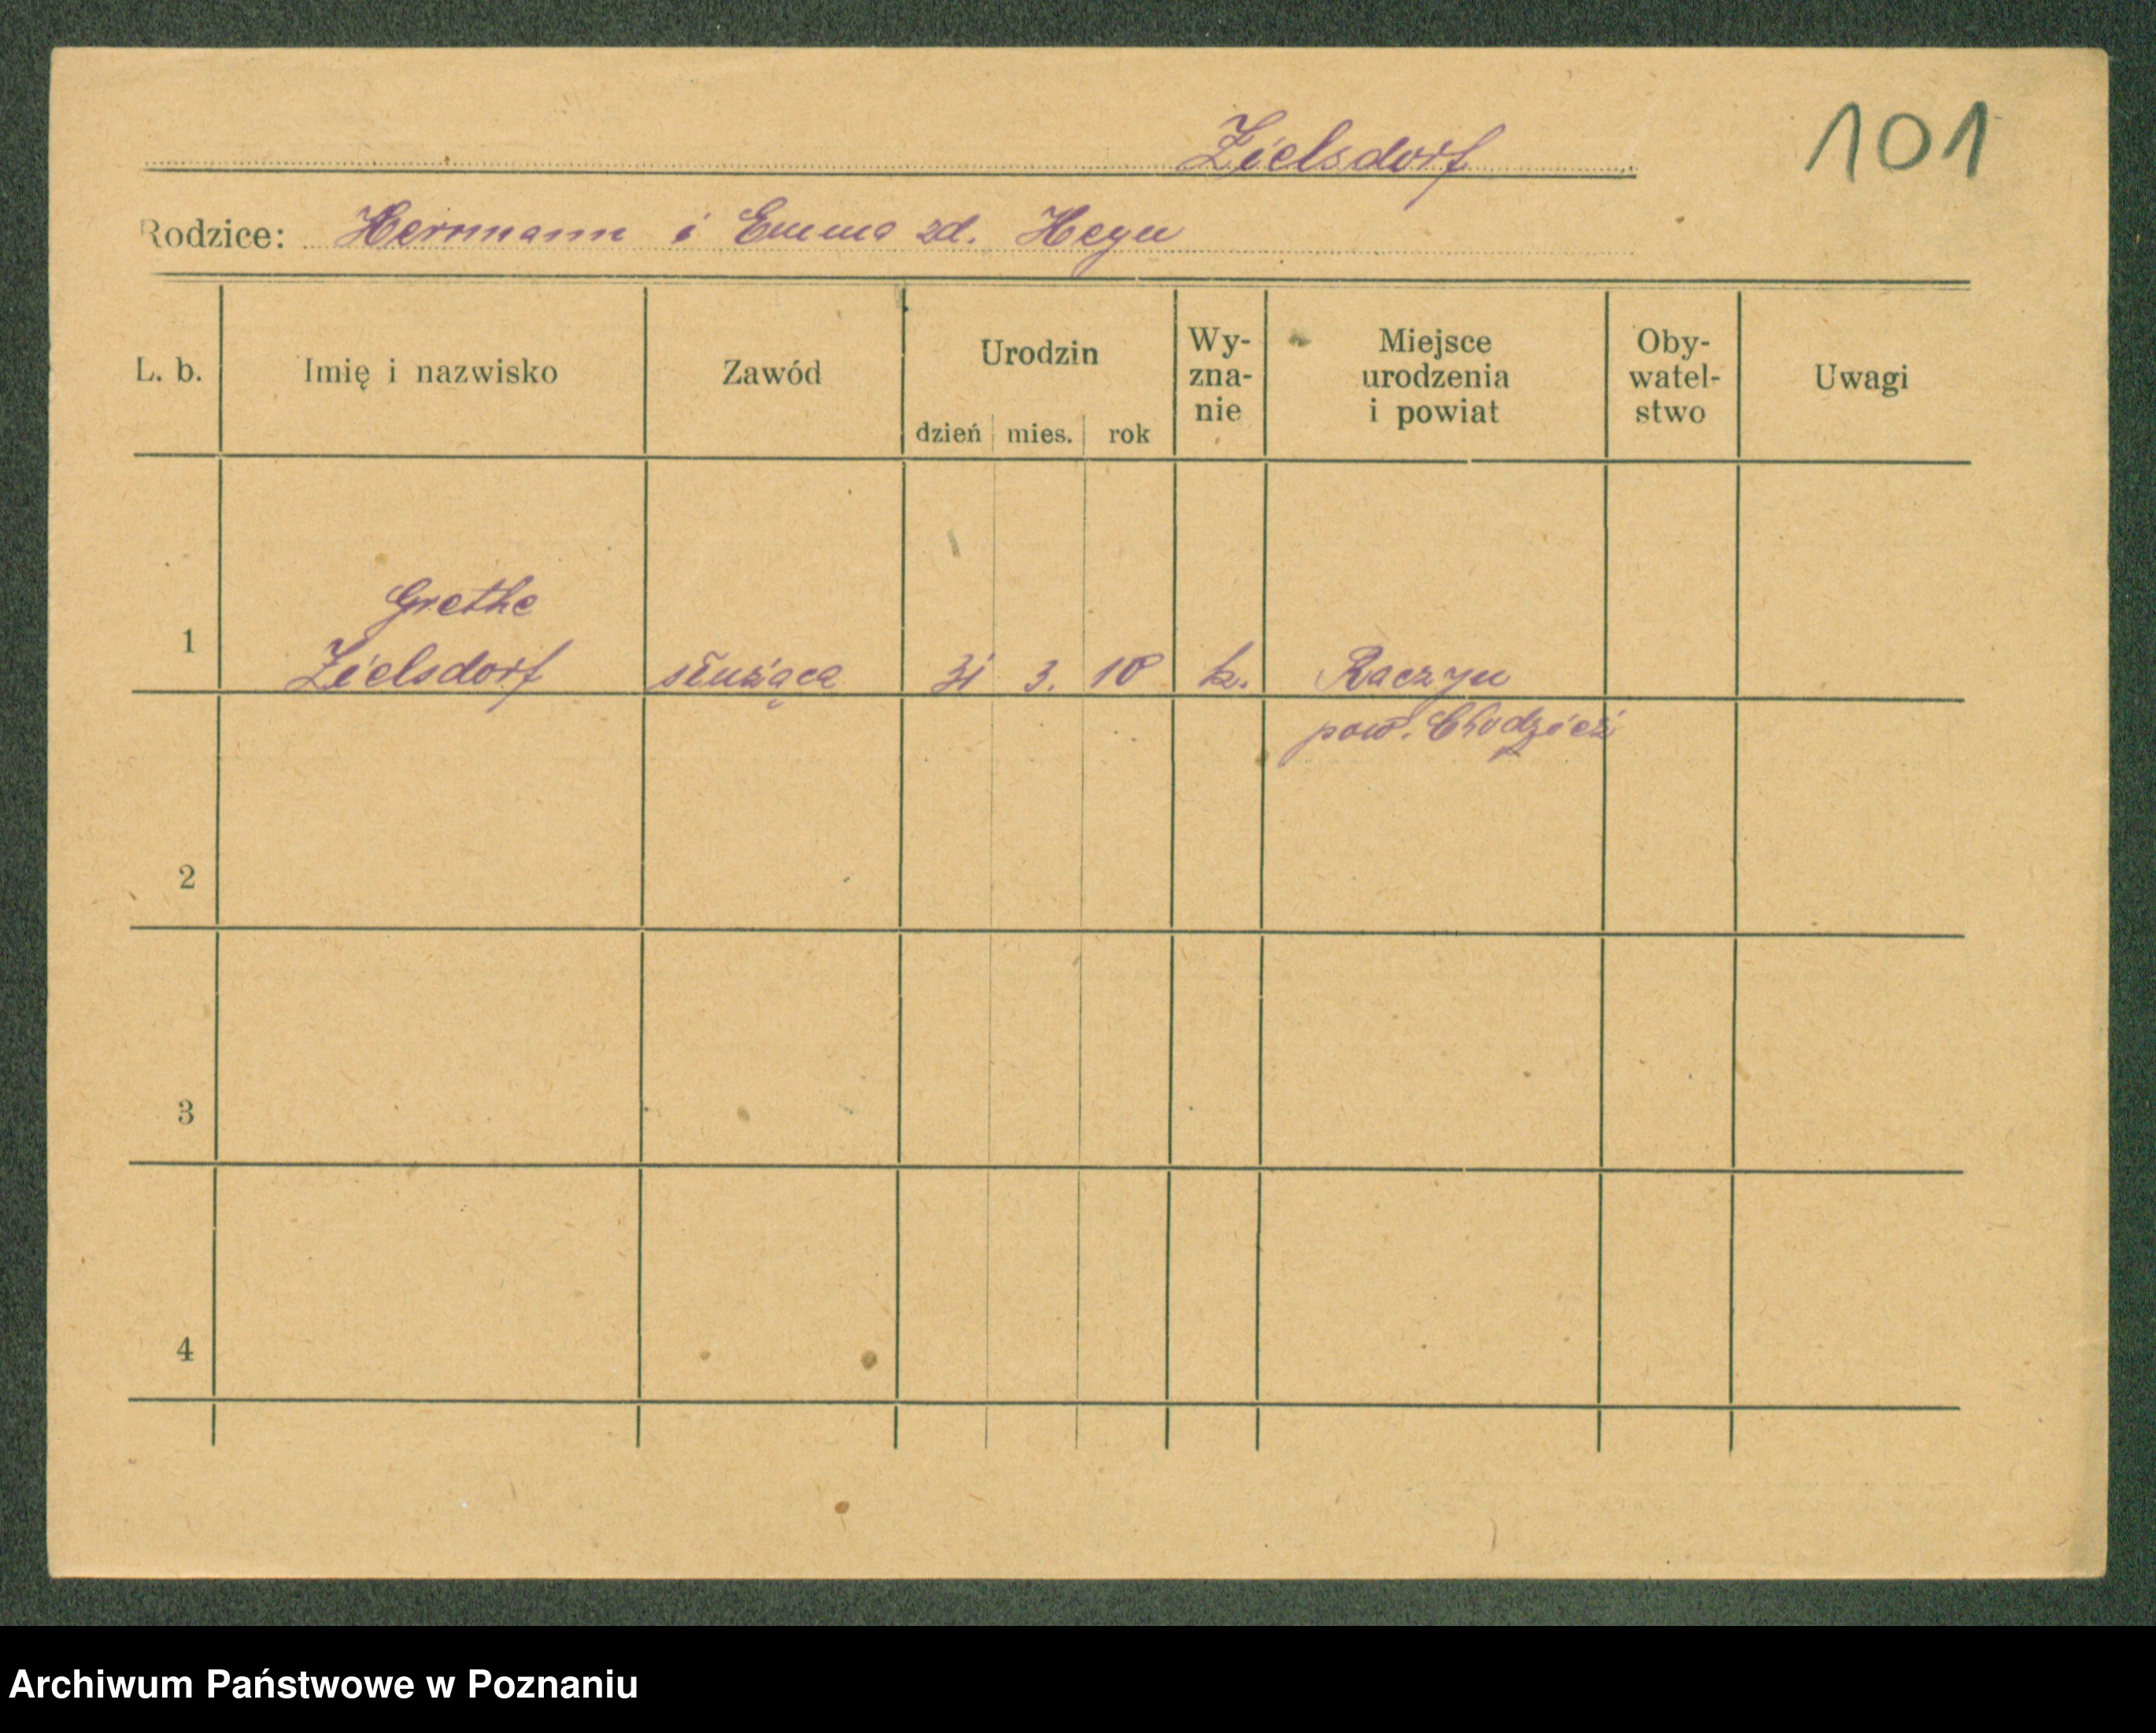 Zielsdorf
101
Rodzice: Hermann i Emma zd. Heyn
L. b.
Imię i nazwisko
Zawód
Urodzin
dzień mies. rok
Wy-
zna-
nie
Miejsce
urodzenia
i powiat
Oby-
watel-
stwo
Uwagi
Grethe
1 Zielsdorf służąca 31 3. 10 k. Raczyn
pow. Chodzież
2
3
4
Archiwum Państwowe w Poznaniu